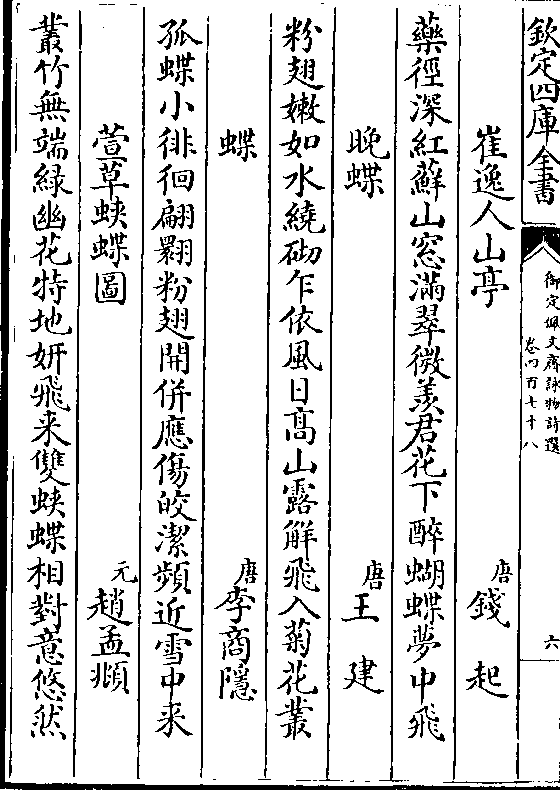 欽定四庫全書
御定佩文齋詠物詩選
卷四百七十八
六
崔逸人山亭
唐 錢起
藥徑深紅蘚山窓滿翠微羨君花下醉蝴蝶夢中飛
晚蝶
唐 王建
粉翅嫩如水繞砌乍依風日高山露解飛入菊花叢
蝶
唐 李商隱
孤蝶小徘徊翩翾粉翅開併應傷皎潔頻近雪中来
萱草蛺蝶圖
元 趙孟頫
叢竹無端緑幽花特地妍飛来雙蛺蝶相對意悠然